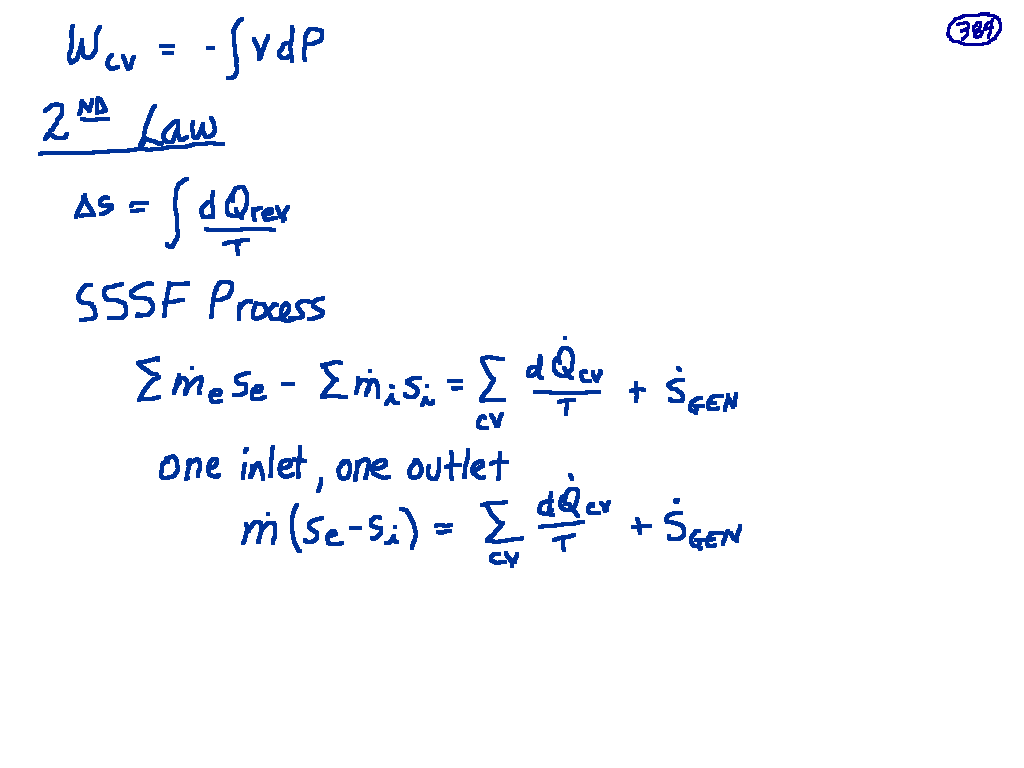 389
W_CV = - ∫ V dP
2ND Law
Δs = ∫ dQ_rev / T
SSSF Process
Σ ṁ_e s_e - Σ ṁ_i s_i = Σ_CV dQ̇_CV / T + Ṡ_GEN
one inlet, one outlet
ṁ (s_e - s_i) = Σ_CV dQ̇_CV / T + Ṡ_GEN